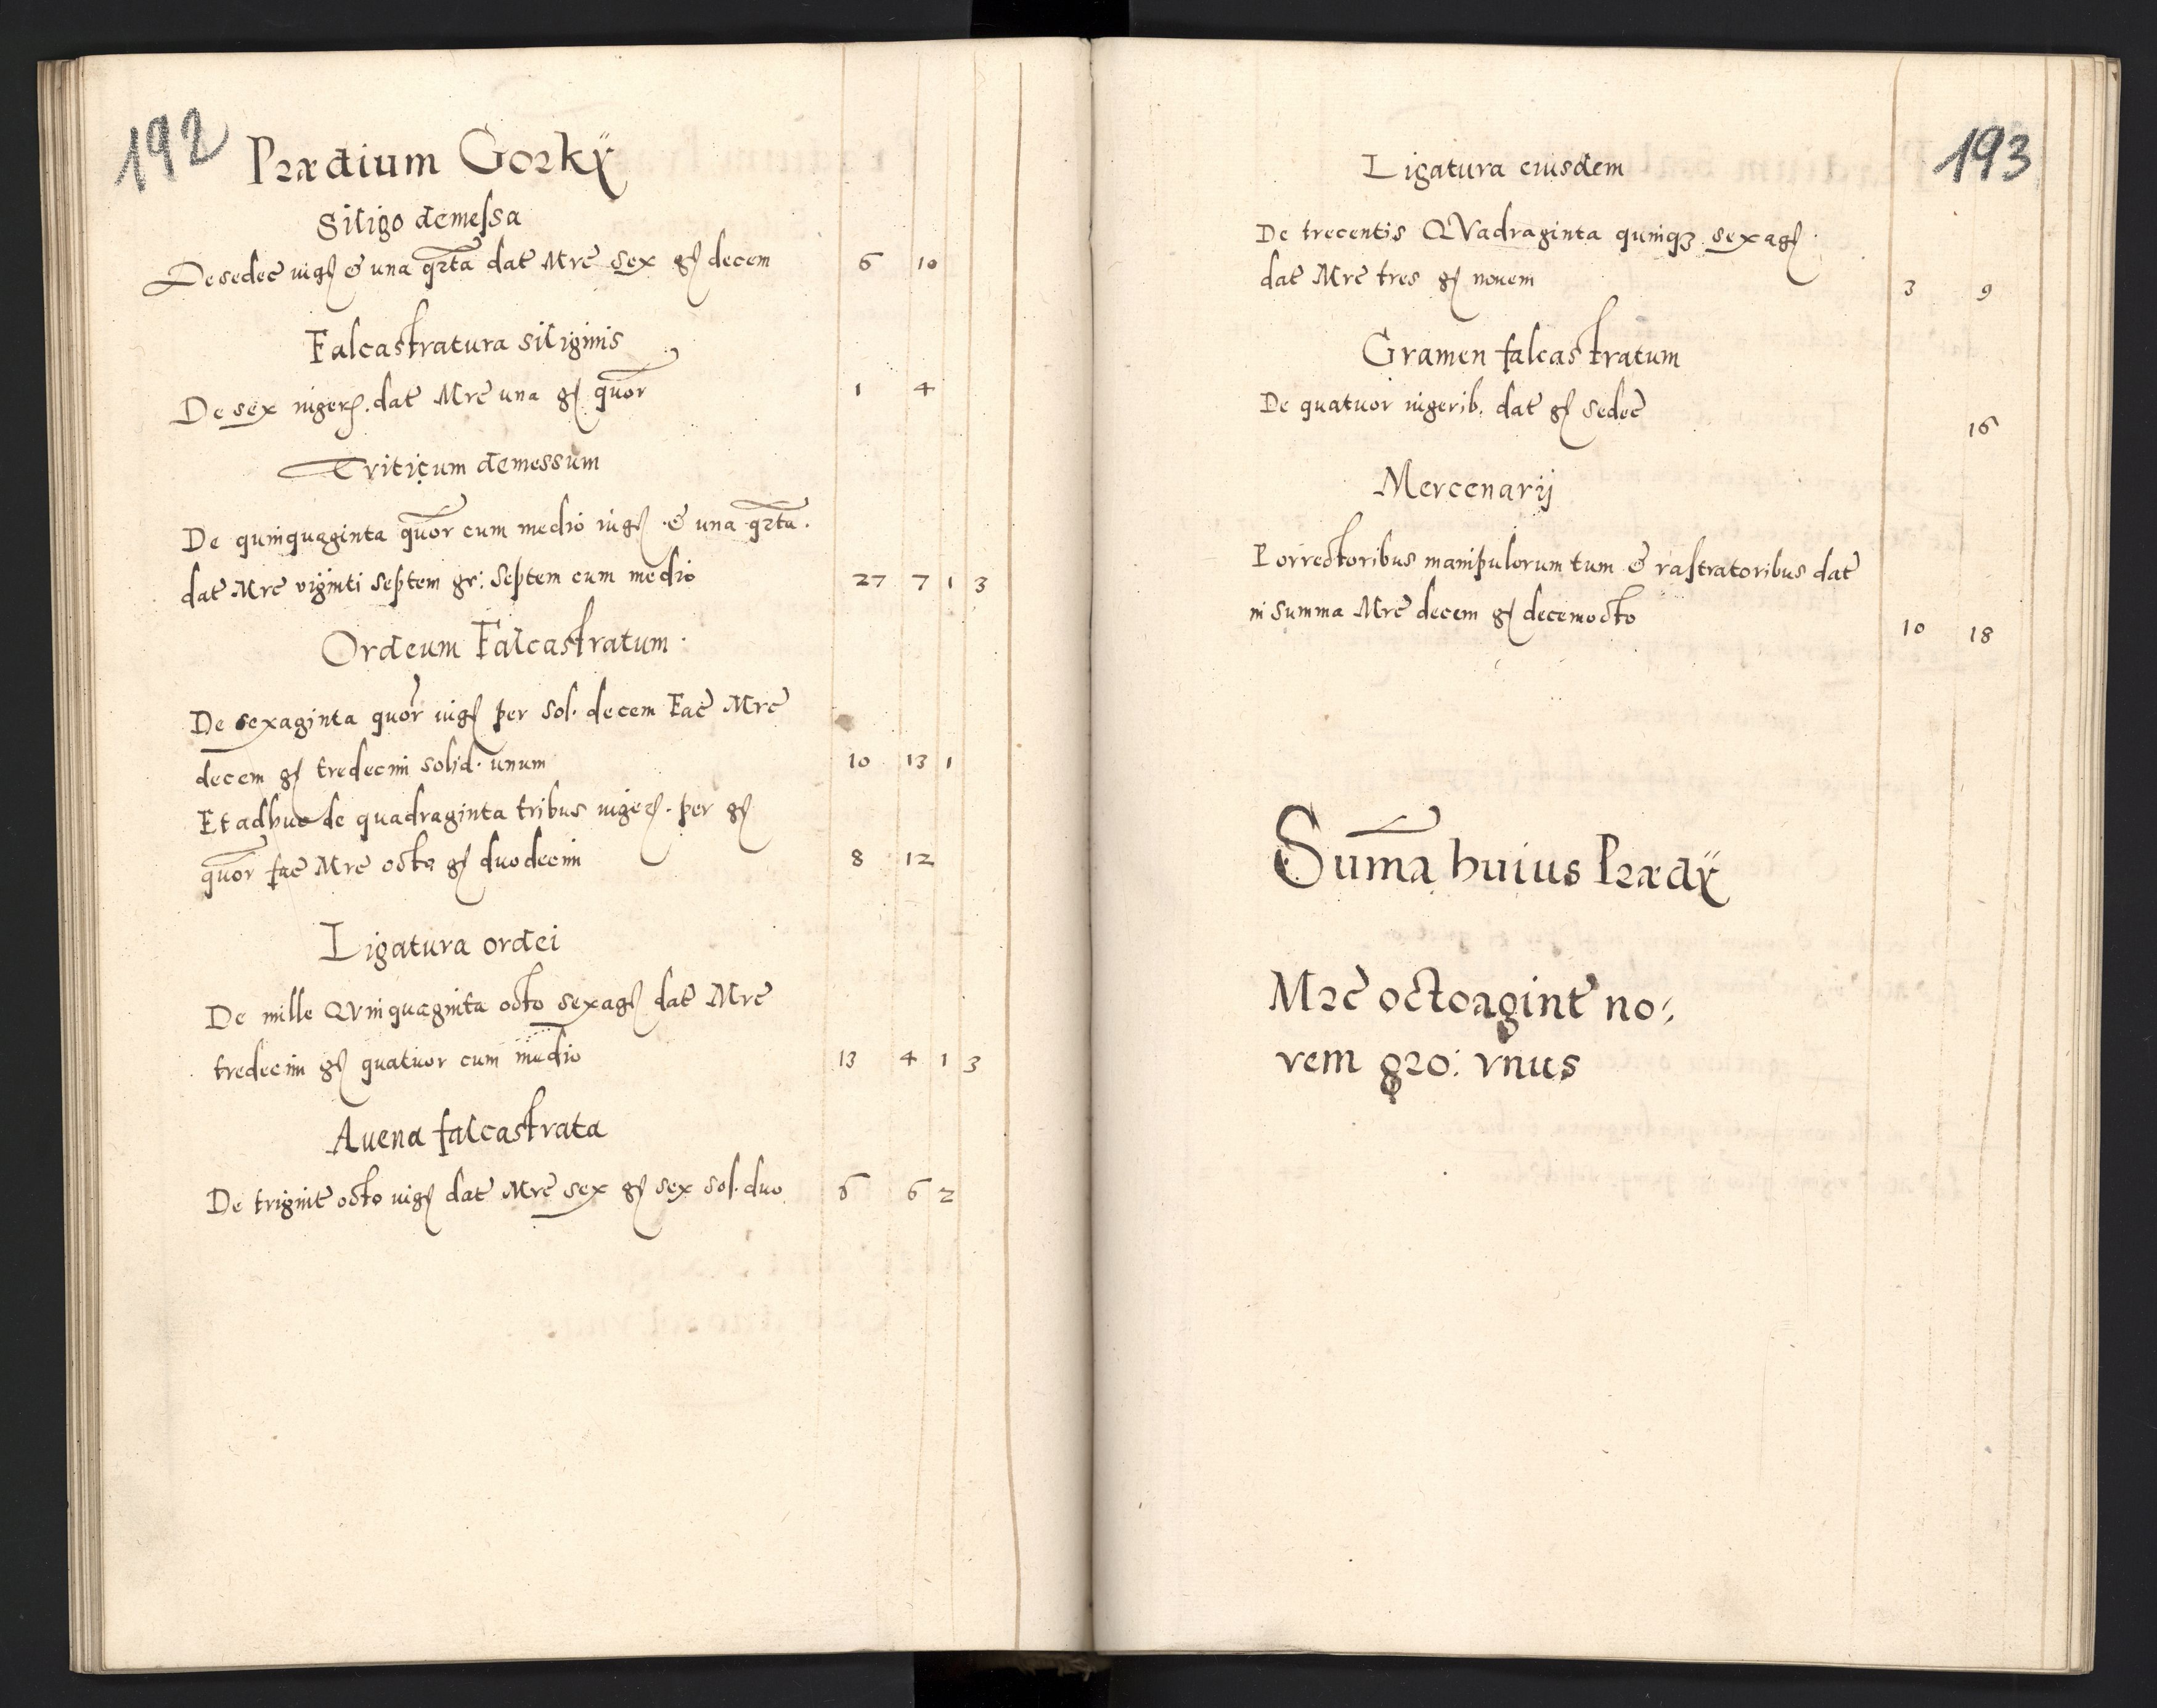 192
Prædium Gorkÿ
Siligo demessa
De sedec̄ iug. & una qrta dat Mrc sex g. decem 6 10
Falcastratura siliginis
De sex iuger. dat Mrc una g. quor 1 4
Triticum demessum
De quinquaginta quor cum medio iug. & una qrta.
dat Mrc viginti septem gr: septem cum medio 27 7 1 3
Ordeum Falcastratum.
De sexaginta quor iug. per sol. decem Fac Mrc
decem g. tredecim solid. unum 10 13 1
Et adhuc de quadraginta tribus iuger. per g.
quor fac Mrc octo g. duodecim 8 12
Ligatura ordei
De mille QVinquaginta octo sexag. dat Mrc
tredecim g. quatuor cum medio 13 4 1 3
Auena falcastrata
De trigint octo iug. dat Mrc sex g. sex sol. duo 6 6 2
193
Ligatura eiusdem
De trecentis QVadraginta quinqꝫ sexag.
dat Mrc tres g. novem 3 9
Gramen falcastratum
De quatuor iugerib. dat g. sedec̄ 16
Mercenarij
Porrectoribus manipulorum tum & rastratoribus dat
in summa Mrc decem g. decemocto 10 18
Sum̄a huius Prædÿ
Mrc octoagint no⸗
vem gro: vnus